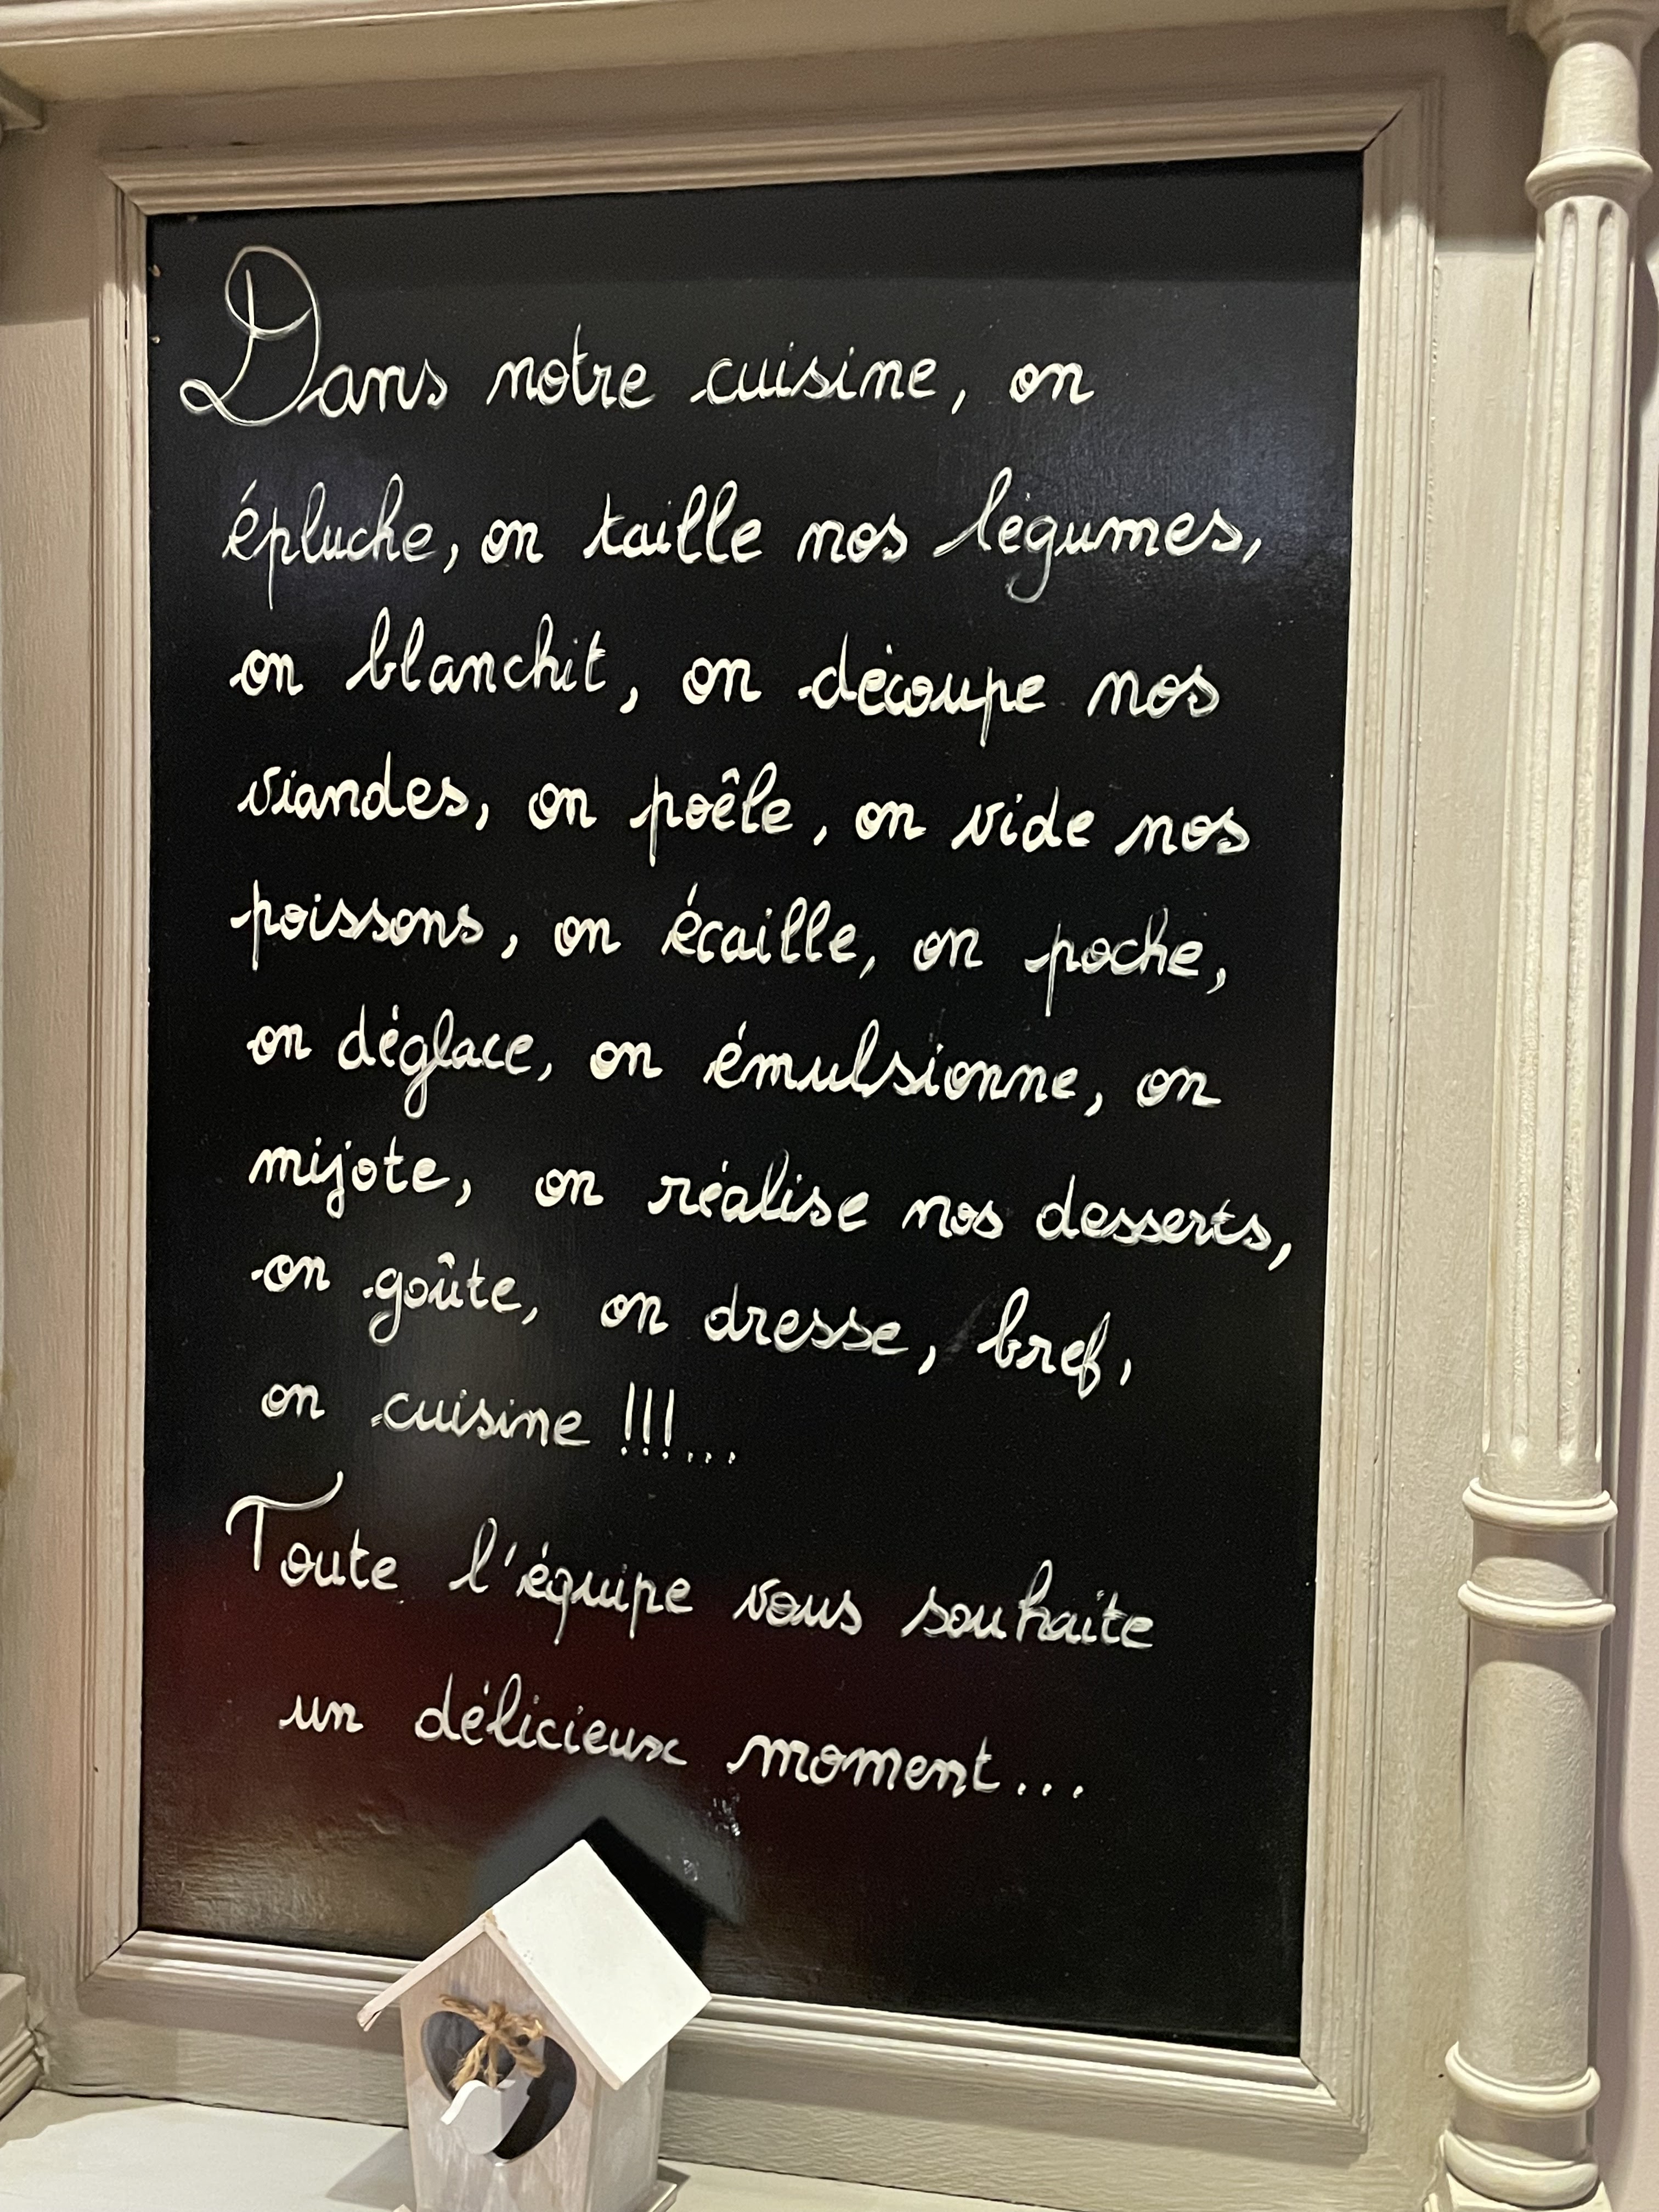 Dans notre cuisine, on
épluche, on taille nos légumes,
on blanchit, on découpe nos
viandes, on poêle, on vide nos
poissons, on écaille, on poche,
on déglace, on émulsionne, on
mijote, on réalise nos desserts,
on goûte, on dresse, bref,
on cuisine !!!...
Toute l'équipe vous souhaite
un délicieux moment...